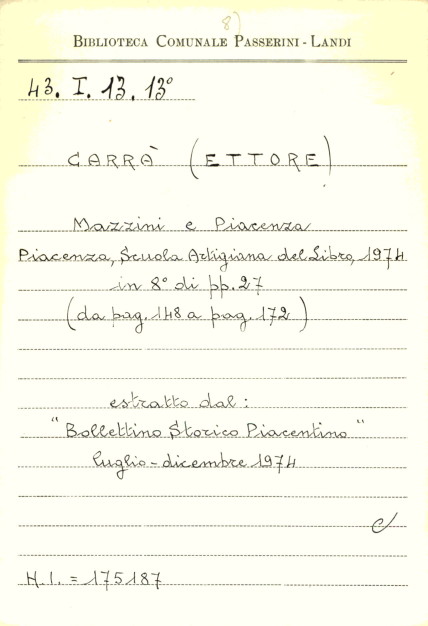 8)
BIBLIOTECA COMUNALE PASSERINI - LANDI
43. I. 13. 13°
CARRÀ (ETTORE)
Mazzini e Piacenza
Piacenza, Scuola Artigiana del Libro, 1974
in 8° di pp. 27
(da pag. 148 a pag. 172)
estratto dal:
"Bollettino Storico Piacentino"
luglio - dicembre 1974
C
H.I. = 175187